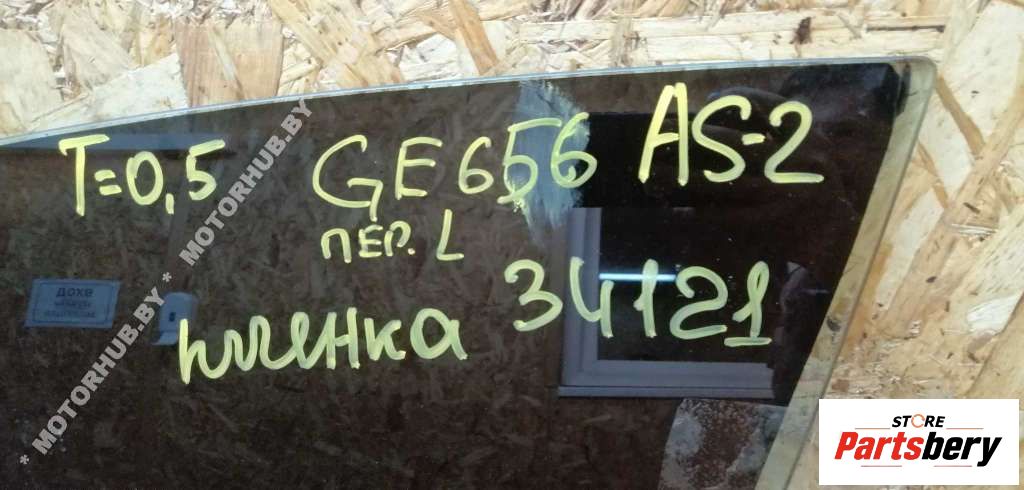 T=0,5 GE656 AS-2
ПЕР. L
пленка 34121
* MOTORHUB.BY * MOTORHUB.BY
STORE
Partsbery